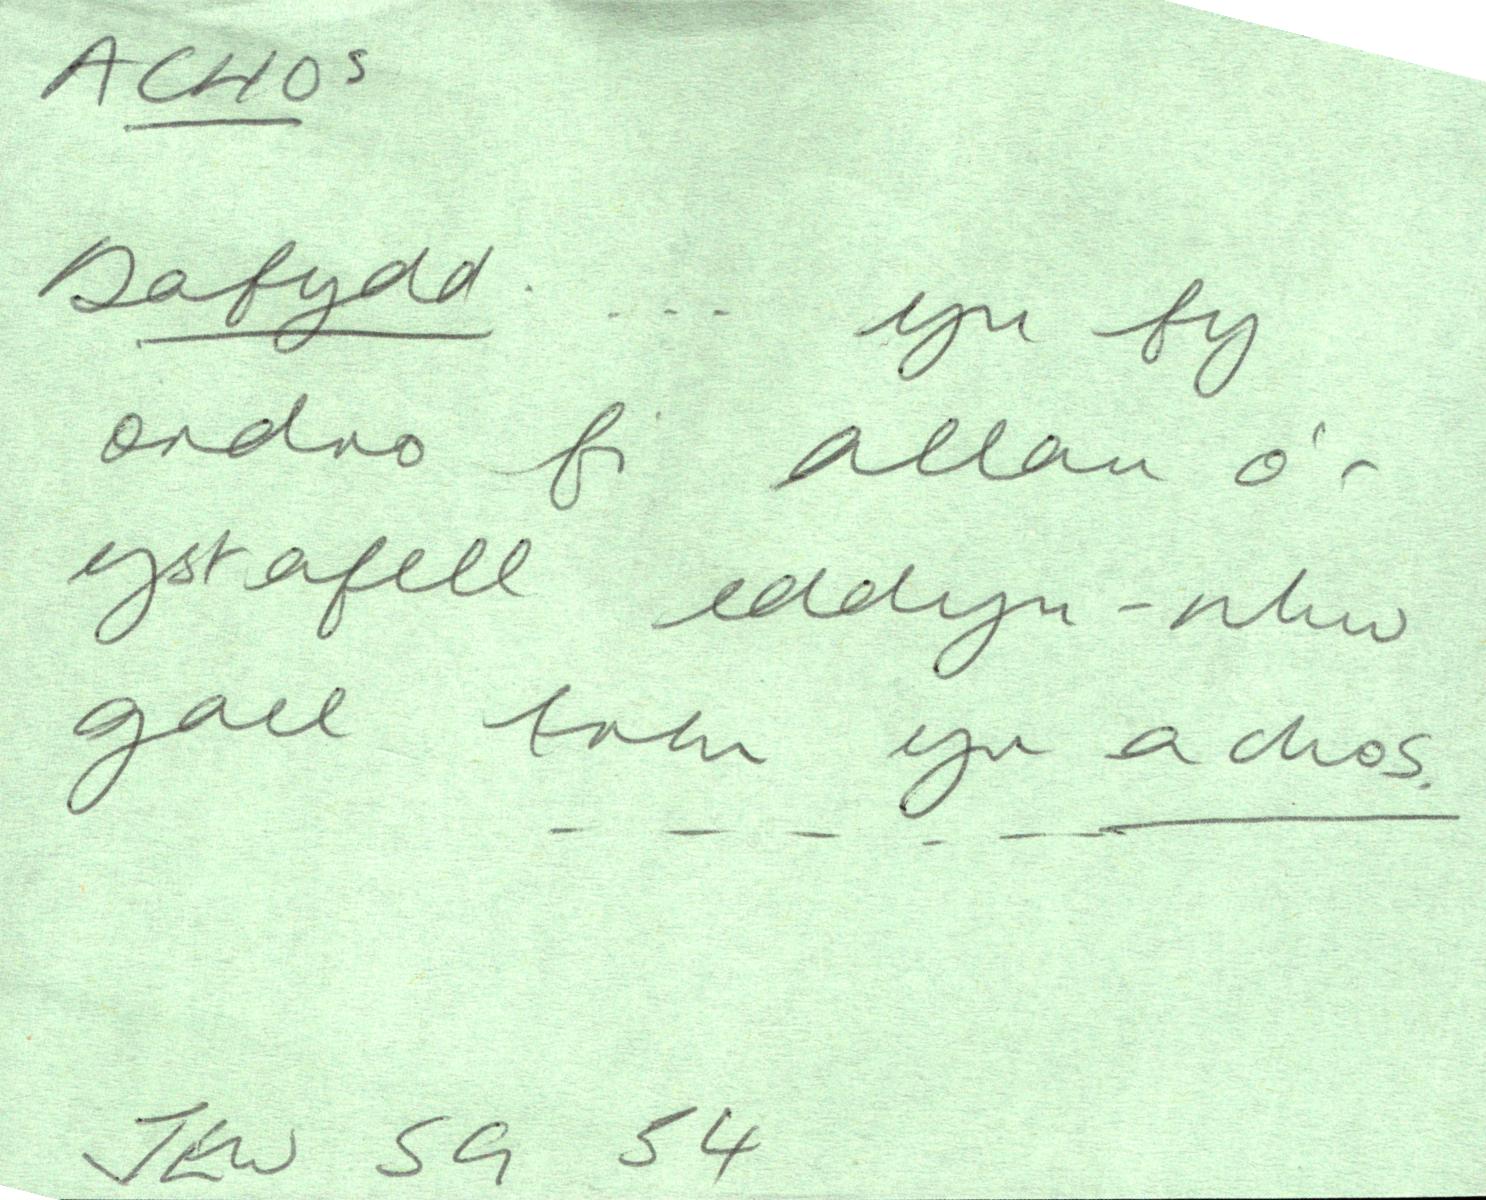 ACHOS
Dafydd. .... yn fy
ordro fi allan o'r
ystafell iddyn-nhw
gael trin yr achos.
JEW SG 54